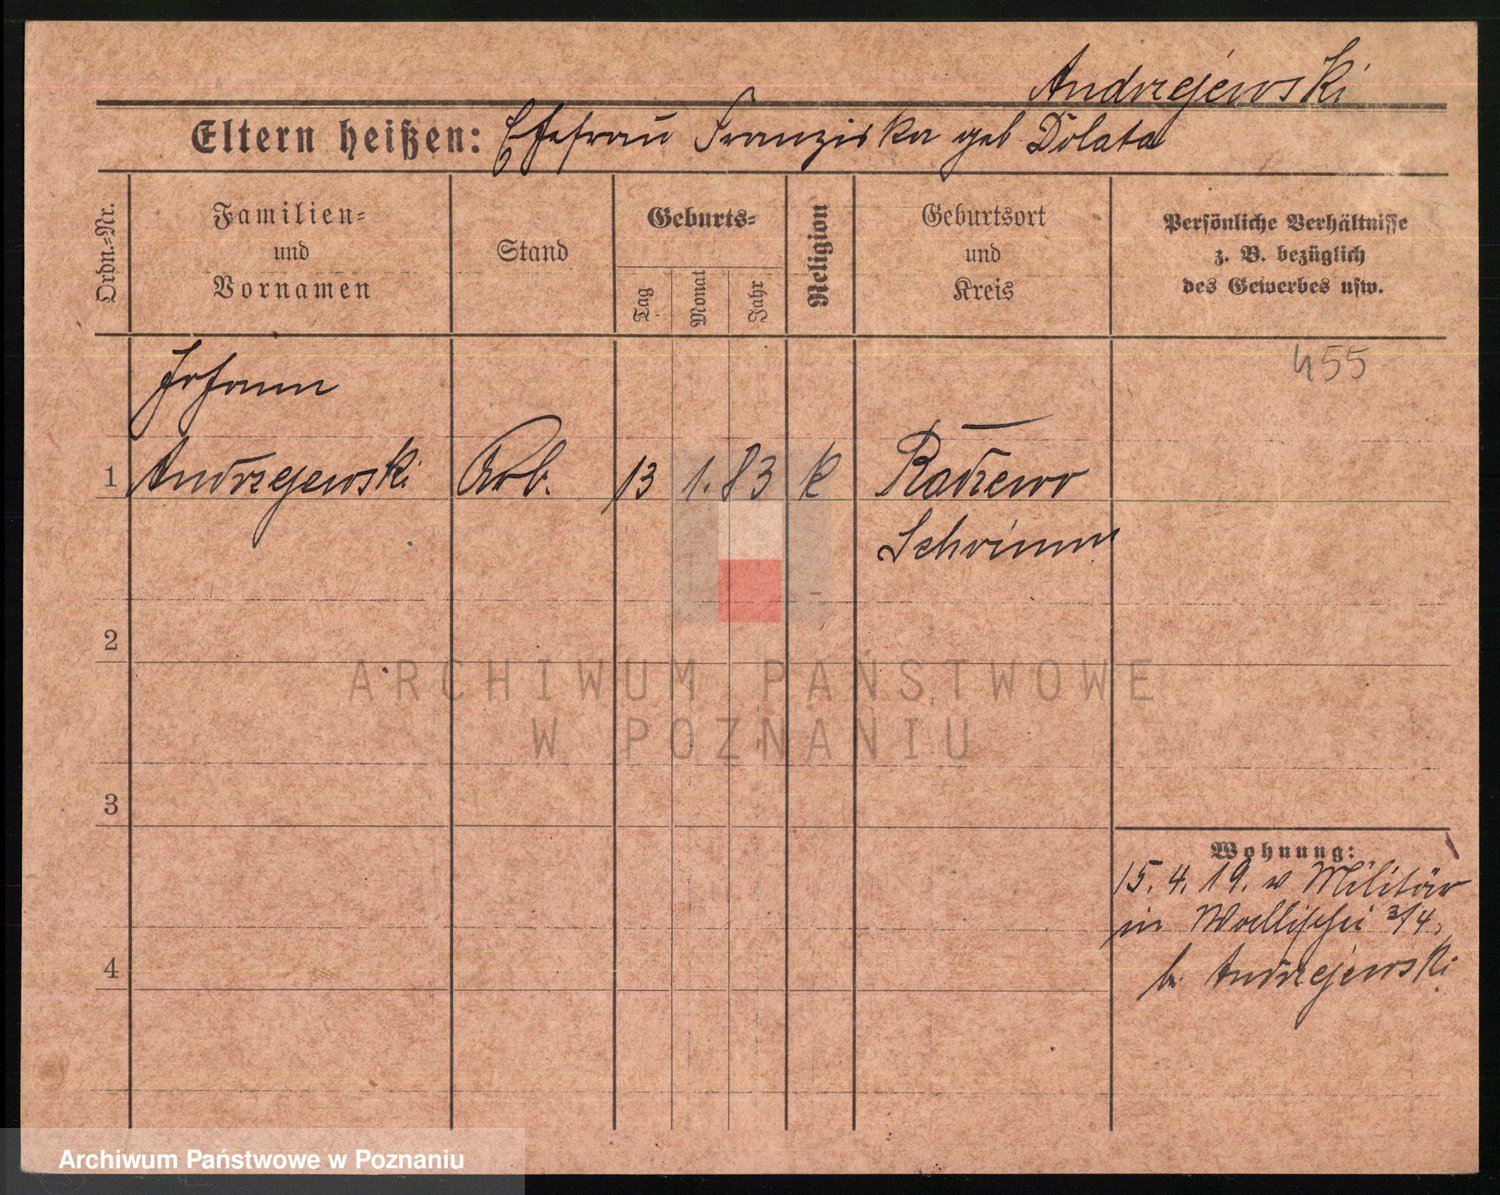 Andrzejewski
Eltern heißen: Ehefrau Franziska geb Dolata
Ordn.=Nr.
Familien=
und
Vornamen
Stand
Geburts=
Tag
Monat
Jahr
Religion
Geburtsort
und
Kreis
Persönliche Verhältnisse
z. B. bezüglich
des Gewerbes usw.
455
Johann
1 Andrzejewski Arb. 13 1. 83 k Radzewo
Schrimm
2
ARCHIWUM PAŃSTWOWE
W POZNANIU
3
Wohnung:
15. 4. 19. v Militär
in Wallischei 3/4,
b. Andrzejewski
4
Archiwum Państwowe w Poznaniu